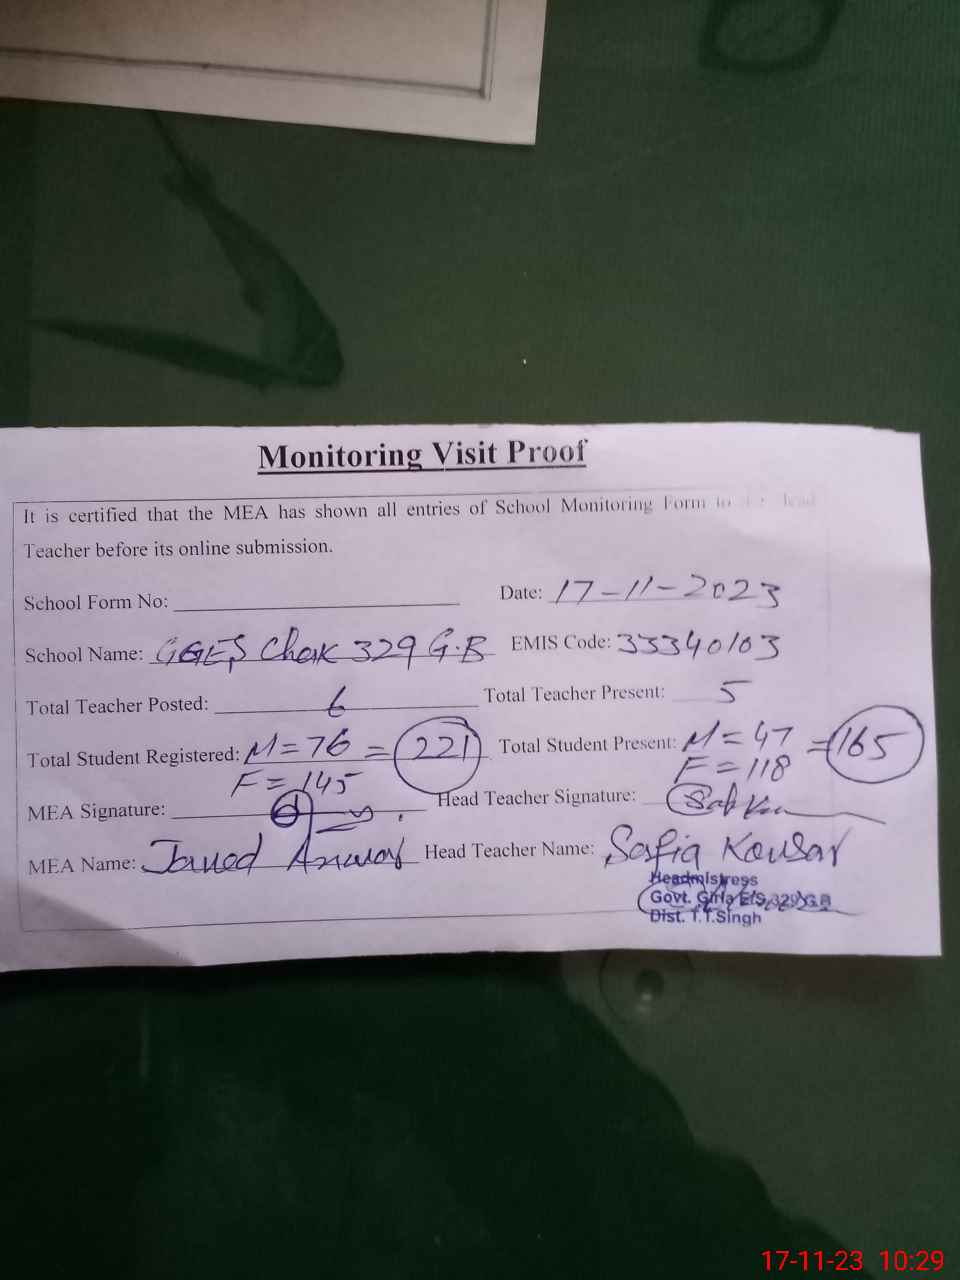 Monitoring Visit Proof
It is certified that the MEA has shown all entries of School Monitoring Form to the Head
Teacher before its online submission.
School Form No: Date: 17-11-2023
School Name: GGES Chak 329 G.B EMIS Code: 33340103
Total Teacher Posted: 6 Total Teacher Present: 5
Total Student Registered: M=76 = 221 Total Student Present: M=47 =165
F=145 F=118
MEA Signature: Head Teacher Signature:
MEA Name: Javed Anwar Head Teacher Name: Safia Kousar
Headmistress
Govt. Girls E/S 329 G.B
Dist. T.T.Singh
17-11-23 10:29